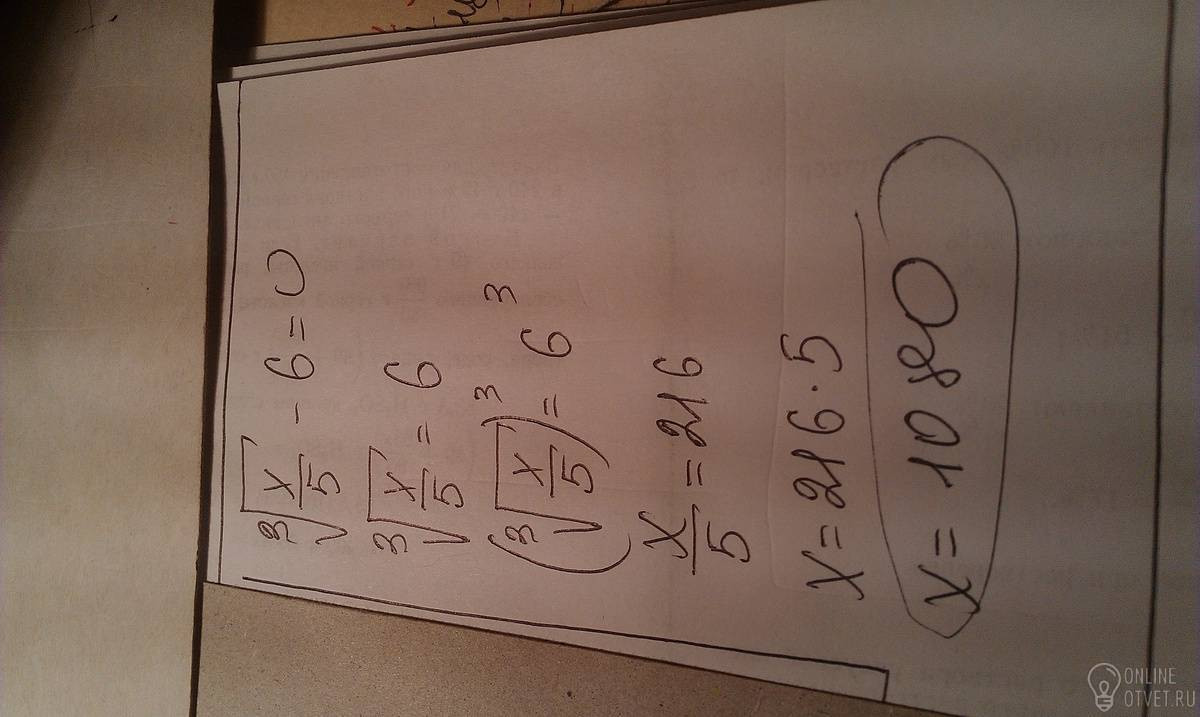 ∛(x/5) − 6 = 0
∛(x/5) = 6
(∛(x/5))³ = 6³
x/5 = 216
x = 216 · 5
x = 1080
ONLINE
OTVET.RU